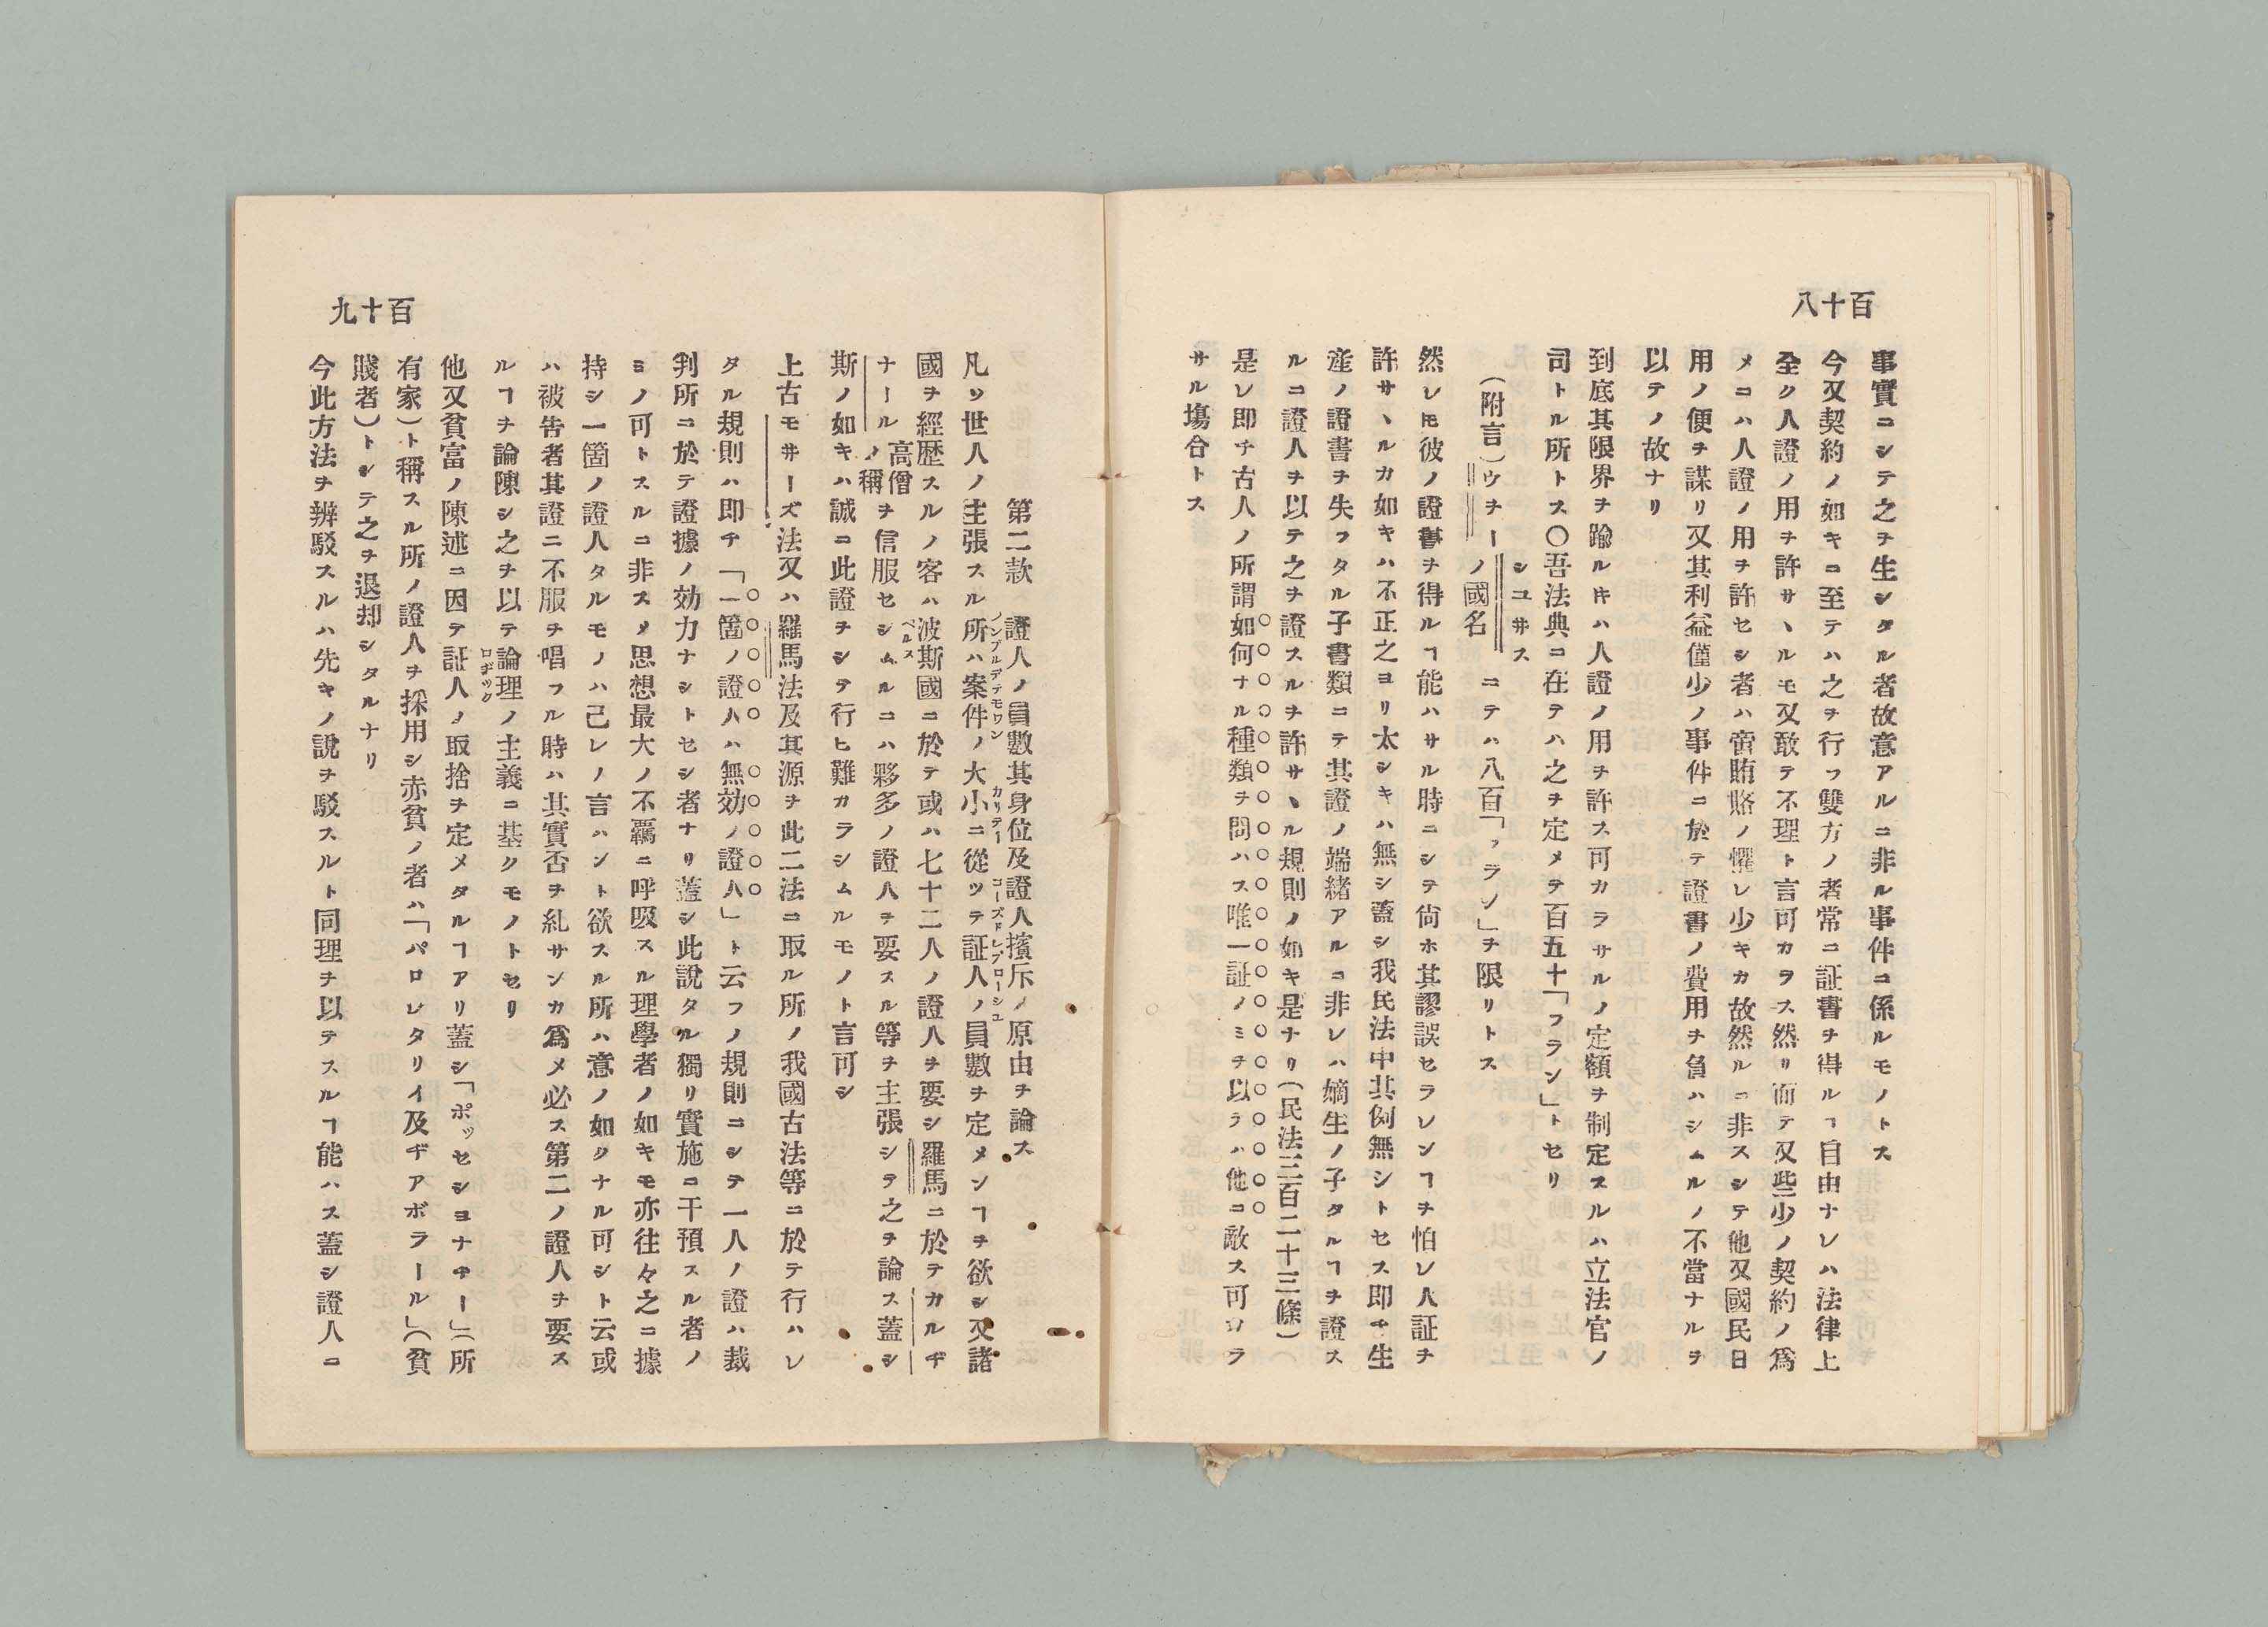 百十八
事實ニシテ之ヲ生シタル者故意アルニ非ル事件ニ係ルモノトス
今又契約ノ如キニ至テハ之ヲ行フ雙方ノ者常ニ証書ヲ得ルヿ自由ナレハ法律上
全ク人證ノ用ヲ許サヽルモ又敢テ不理ト言可カラス然リ而テ又些少ノ契約ノ爲
メニハ人證ノ用ヲ許セシ者ハ啻賄賂ノ懼レ少キカ故然ルニ非スシテ他又國民日
用ノ便ヲ謀リ又其利益僅少ノ事件ニ於テ證書ノ費用ヲ負ハシムルノ不當ナルヲ
以テノ故ナリ
到底其限界ヲ踰ル𪜈ハ人證ノ用ヲ許ス可カラサルノ定額ヲ制定スルハ立法官ノ
司トル所トス〇吾法典ニ在テハ之ヲ定メテ百五十「フラン」トセリ
（附言）ウヲー シユ井スノ國名 ニテハ八百「フラン」ヲ限リトス
然レ𪜈彼ノ證書ヲ得ルヿ能ハサル時ニシテ尙ホ其謬誤セラレンヿヲ怕レ人証ヲ
許サヽルカ如キハ不正之ヨリ太シキハ無シ蓋シ我民法中其例無シトセス即チ生
產ノ證書ヲ失フタル子書類ニテ其證ノ端緖アルニ非レハ嫡生ノ子タルヿヲ證ス
ルニ證人ヲ以テ之ヲ證スルヲ許サヽル規則ノ如キ是ナリ（民法三百二十三條）
是レ即チ古人ノ所謂如何ナル種類ヲ問ハス唯一証ノミヲ以ラハ他ニ敵ス可カラ
サル塲合トス
百十九
第二款　證人ノ員數其身位及證人擯斥ノ原由ヲ論ス
凡ソ世人ノ主張スル所ハ案件ノ大小ニ從ツテ証人ノ員數ヲ定メンヿヲ欲シ又諸
國ヲ經歴スルノ客ハ波斯國ニ於テ或ハ七十二人ノ證人ヲ要シ羅馬ニ於テカルヂ
ナール高僧ノ稱ヲ信服セシムルニハ夥多ノ證人ヲ要スル等ヲ主張シテ之ヲ論ス蓋シ
斯ノ如キハ誠ニ此證ヲシテ行ヒ難カラシムルモノト言可シ
上古モ井ーズ法又ハ羅馬法及其源ヲ此二法ニ取ル所ノ我國古法等ニ於テ行ハレ
タル規則ハ即チ「一箇ノ證人ハ無効ノ證人」ト云フノ規則ニシテ一人ノ證ハ裁
判所ニ於テ證據ノ効力ナシトセシ者ナリ蓋シ此說タル獨リ實施ニ干預スル者ノ
ミノ可トスルニ非スメ思想最大ノ不覊ニ呼吸スル理學者ノ如キモ亦往々之ニ據
持シ一箇ノ證人タルモノハ己レノ言ハント欲スル所ハ意ノ如クナル可シト云或
ハ被告者其證ニ不服ヲ唱フル時ハ其實否ヲ糺サンカ爲メ必ス第二ノ證人ヲ要ス
ルヿヲ論陳シ之ヲ以テ論理ノ主義ニ基クモノトセリ
他又貧富ノ陳述ニ因テ証人ノ取捨ヲ定メタルヿアリ蓋シ「ポッセシヨナヰー」（所
有家）ト稱スル所ノ證人ヲ採用シ赤貧ノ者ハ「パロレタリイ及ヂアボラール」（貧
賤者）トシテ之ヲ退却シタルナリ
今此方法ヲ辨駁スルハ先キノ說ヲ駁スルト同理ヲ以テスルヿ能ハス蓋シ證人ニ